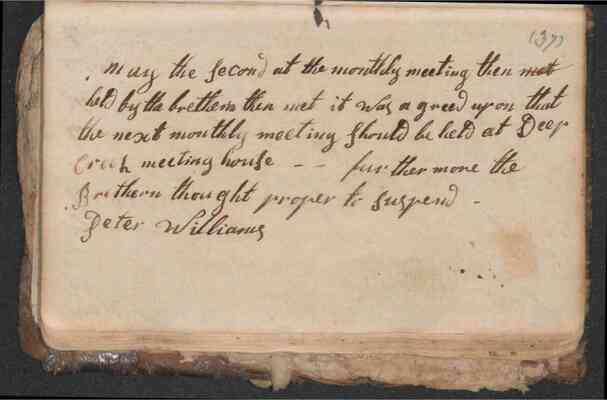 (37)
May the Second at the monthly meeting then met
held by the brethern then met it was a greed upon that
the next monthly meeting should be held at Deep
Creek meeting house - - fur ther more the
Brethern thought proper to suspend -
Peter Williams